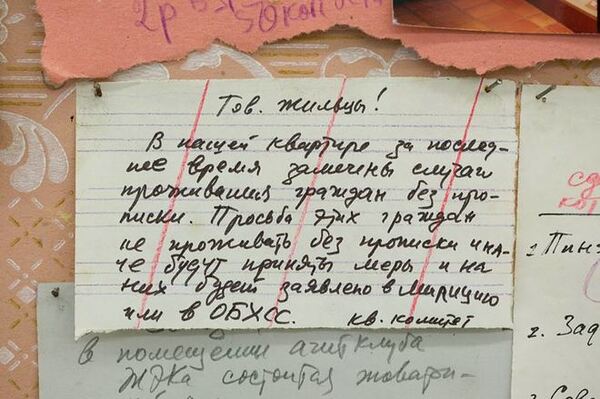 2р
50 коп
Тов. жильцы!
В нашей квартире за послед-
нее время замечены случаи
проживания граждан без про-
писки. Просьба этих граждан
не проживать без прописки ина-
че будут приняты меры и на
них будет заявлено в милицию
или в ОБХСС. кв. комитет
в помещении агитклуба
ЖЭКа состоится товари-
1 Пин
2. Зад